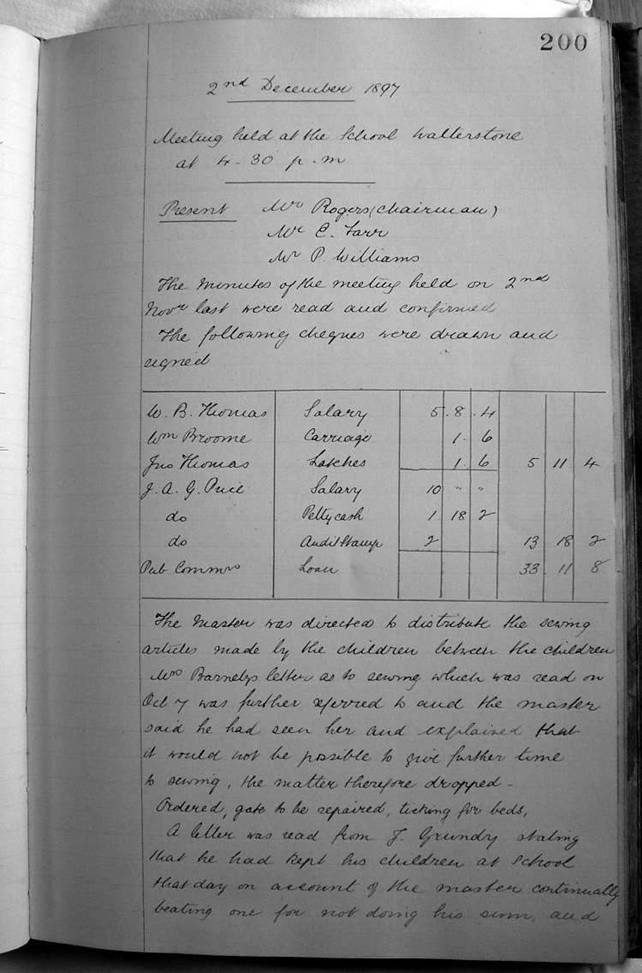 200
2nd December 1897
Meeting held at the School Walterstone
at 4-30 p.m
Present Mr Rogers (Chairman)
Mr E. Farr
Mr P. Williams
The Minutes of the meeting held on 2nd
Novr last were read and confirmed
The following cheques were drawn and
signed
W. B. Thomas Salary 5 . 8 . 4
Wm Broome Carriage 1 . 6
Jno Thomas Latches 1 . 6 5 11 4
J. A. G. Price Salary 10 " "
do Pettycash 1 18 2
do Audit Stamp 2 13 18 2
Pub Commrs Loan 33 . 11 8
The Master was directed to distribute the sewing
articles made by the children between the children
Mrs Barnebys letter as to sewing which was read on
Oct 7 was further referred to and the master
said he had seen her and explained that
it would not be possible to give further time
to sewing, the matter therefore dropped -
Ordered, gate to be repaired, ticking for beds,
A letter was read from J. Grundy stating
that he had kept his children at School
that day on account of the master continually
beating one for not doing his sum, and